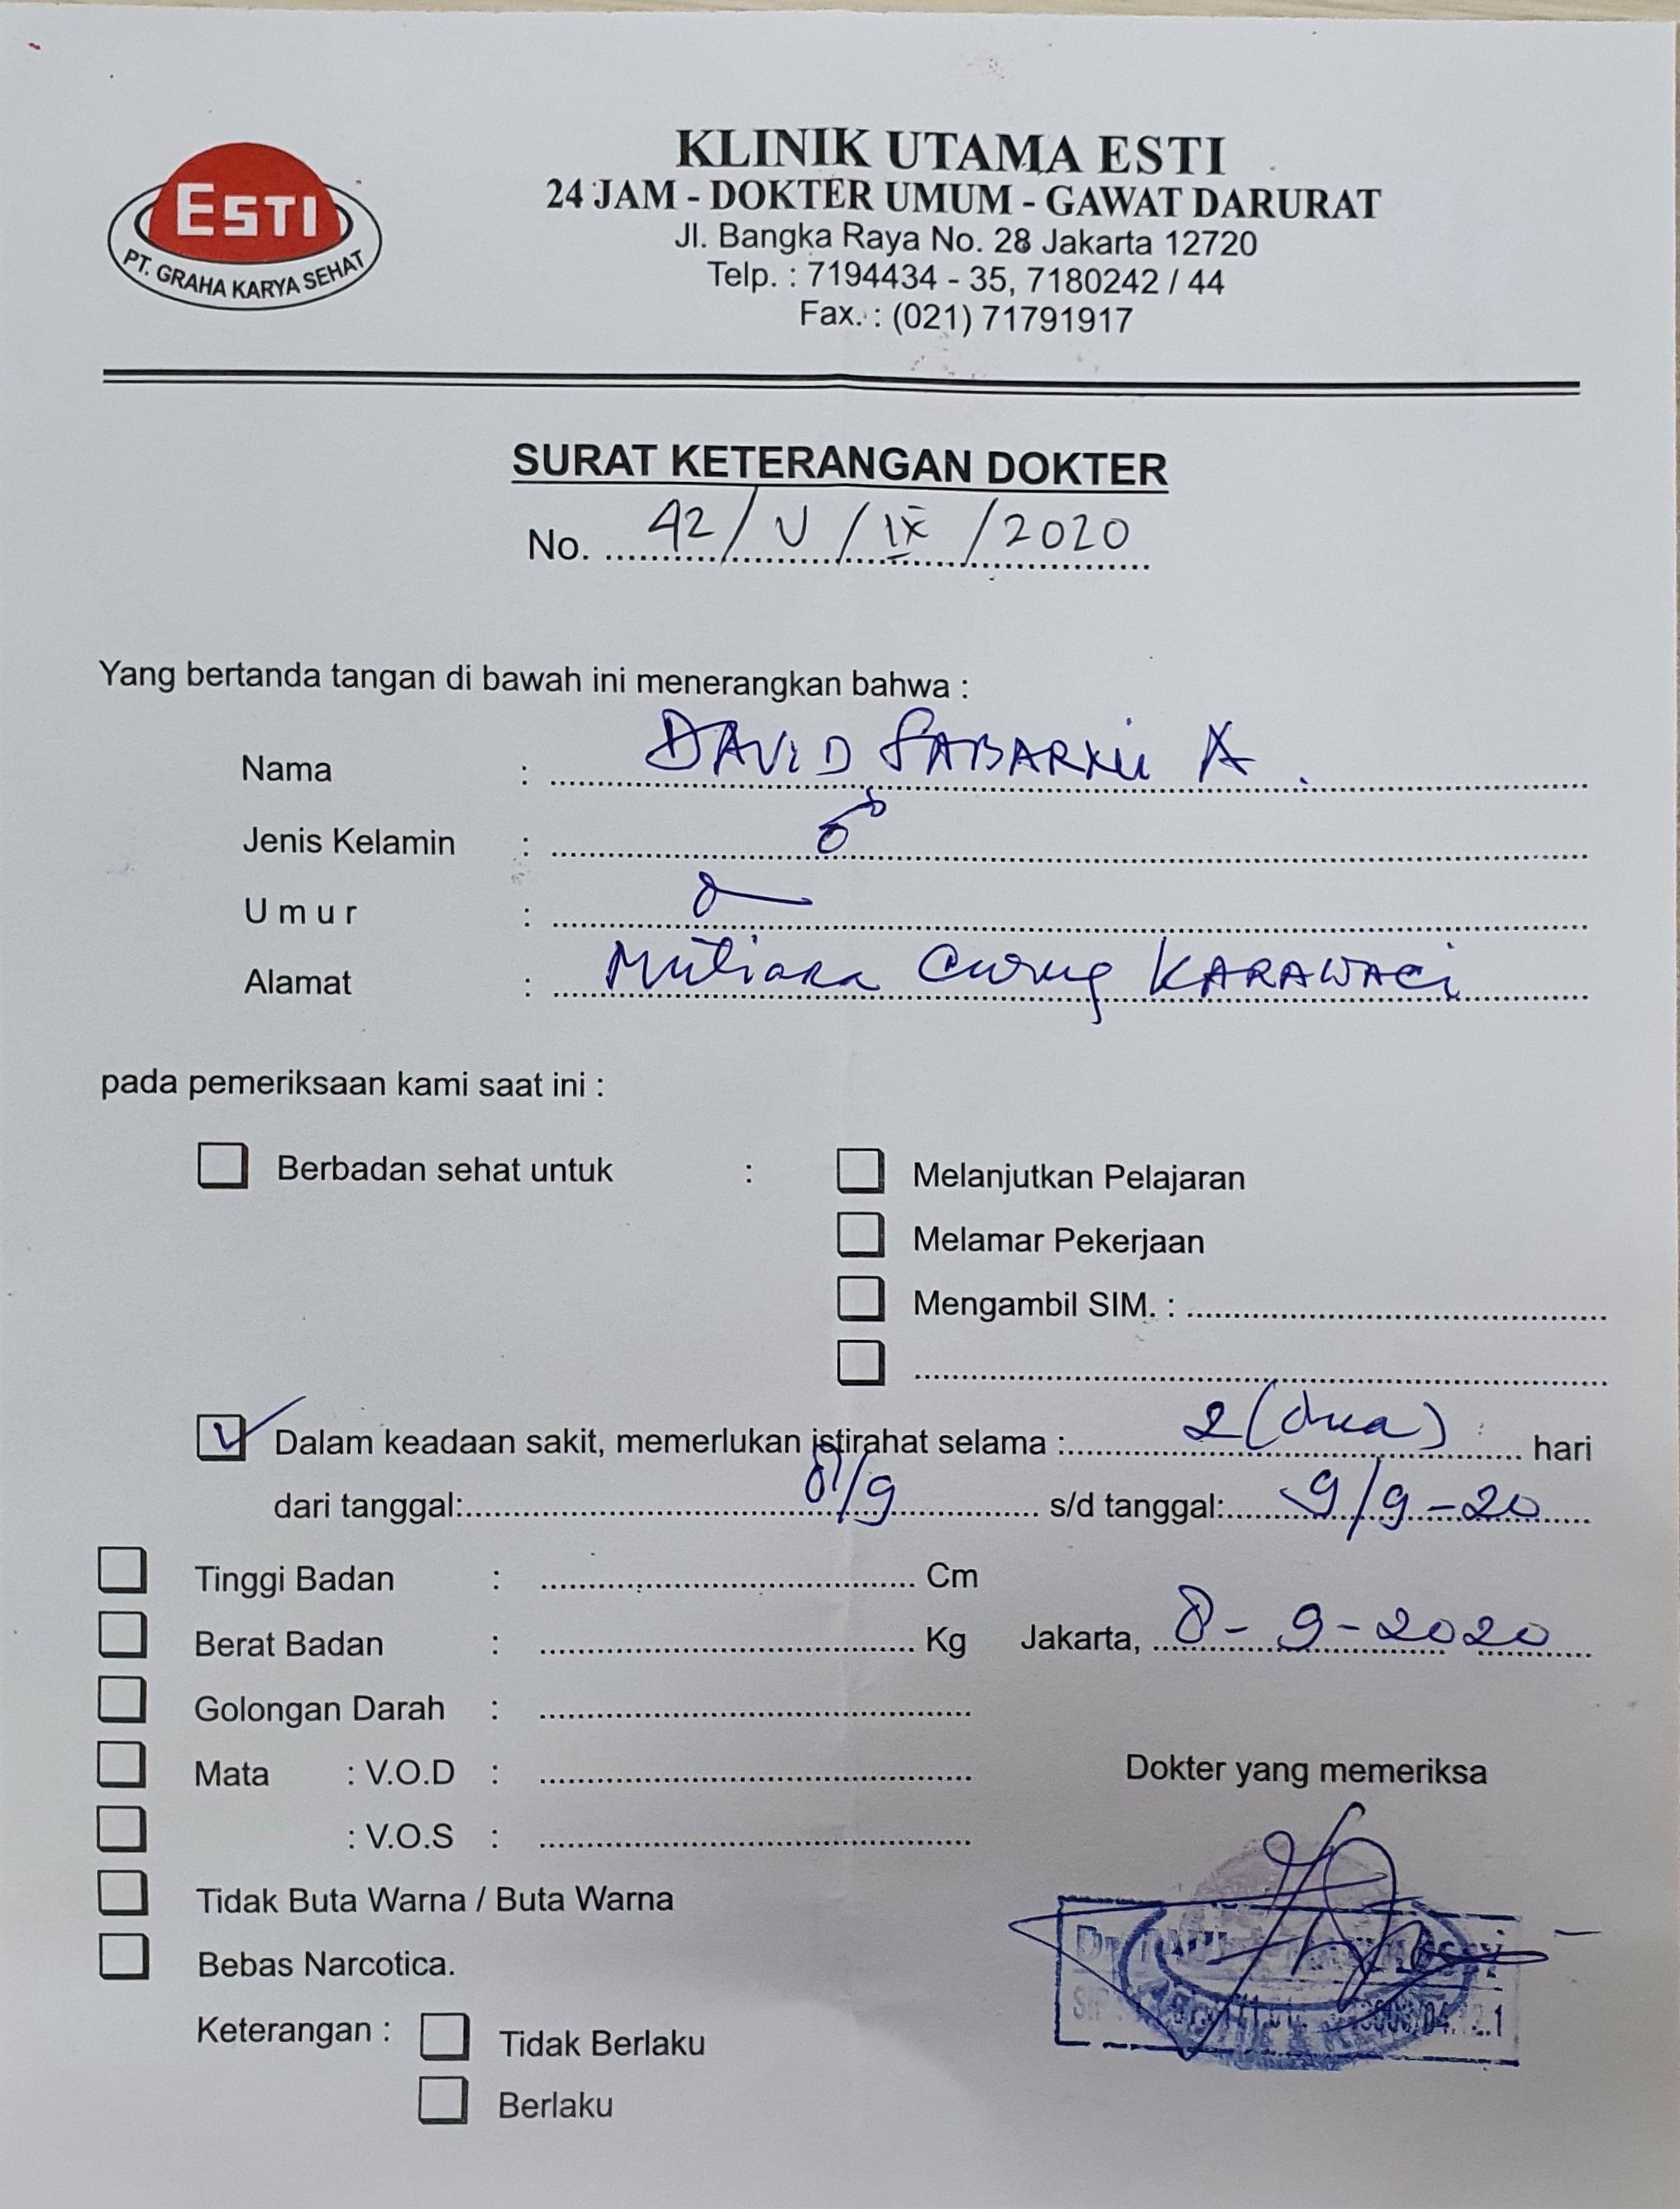 ESTI
PT. GRAHA KARYA SEHAT
KLINIK UTAMA ESTI
24 JAM - DOKTER UMUM - GAWAT DARURAT
Jl. Bangka Raya No. 28 Jakarta 12720
Telp. : 7194434 - 35, 7180242 / 44
Fax. : (021) 71791917
SURAT KETERANGAN DOKTER
No. 42/V/IX/2020
Yang bertanda tangan di bawah ini menerangkan bahwa :
Nama : DAVID A.
Jenis Kelamin : ♂
Umur :
Alamat : Mutiara Curug KARAWACi
pada pemeriksaan kami saat ini :
Berbadan sehat untuk : Melanjutkan Pelajaran
Melamar Pekerjaan
Mengambil SIM. :
Dalam keadaan sakit, memerlukan istirahat selama : 2 (dua) hari
dari tanggal: 8/9 s/d tanggal: 9/9-20
Tinggi Badan : Cm
Berat Badan : Kg Jakarta, 8-9-2020
Golongan Darah :
Mata : V.O.D :
: V.O.S :
Dokter yang memeriksa
Tidak Buta Warna / Buta Warna
Bebas Narcotica.
Keterangan : Tidak Berlaku
Berlaku